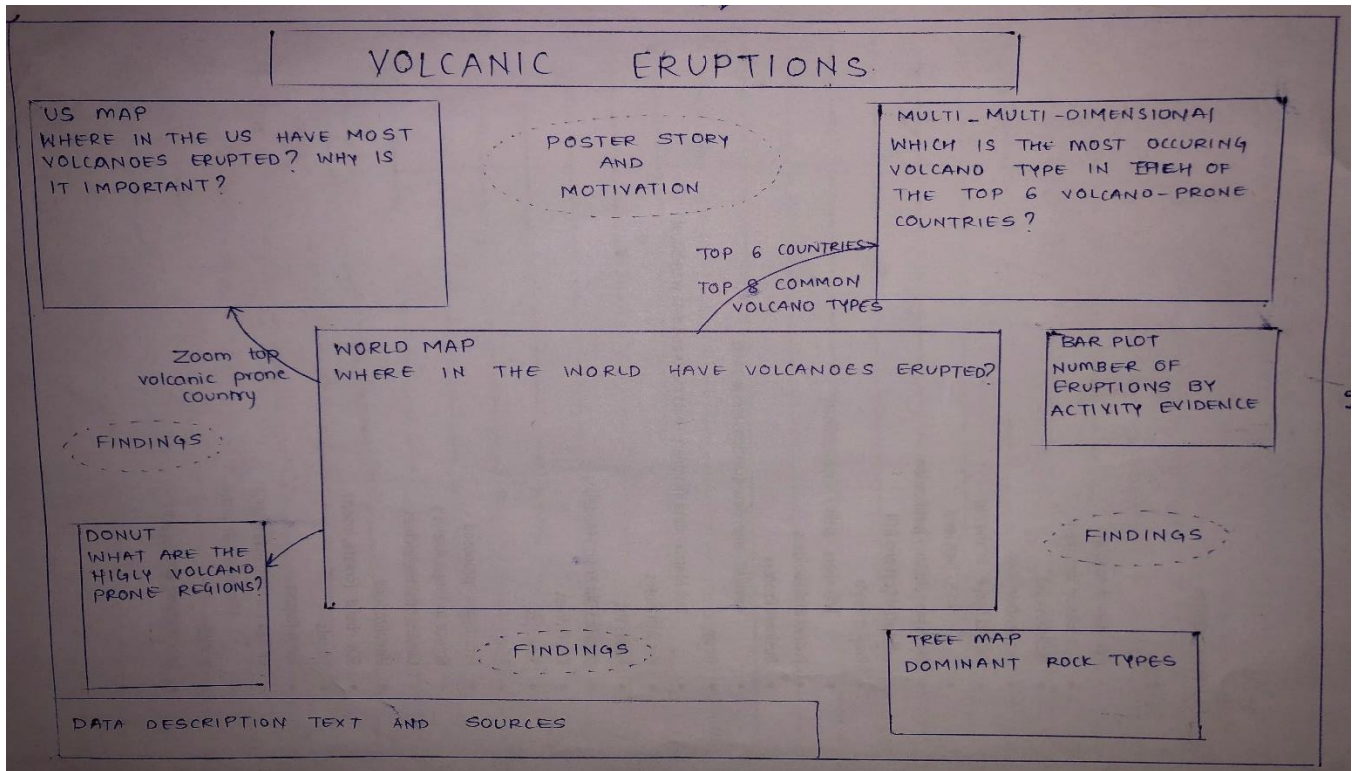 VOLCANIC ERUPTIONS
US MAP
WHERE IN THE US HAVE MOST
VOLCANOES ERUPTED? WHY IS
IT IMPORTANT?
POSTER STORY
AND
MOTIVATION
MULTI_MULTI-DIMENSIONAL
WHICH IS THE MOST OCCURING
VOLCANO TYPE IN EACH OF
THE TOP 6 VOLCANO-PRONE
COUNTRIES?
TOP 6 COUNTRIES
TOP 8 COMMON
VOLCANO TYPES
Zoom top
volcanic prone
country
WORLD MAP
WHERE IN THE WORLD HAVE VOLCANOES ERUPTED?
BAR PLOT
NUMBER OF
ERUPTIONS BY
ACTIVITY EVIDENCE
FINDINGS
DONUT
WHAT ARE THE
HIGLY VOLCANO
PRONE REGIONS?
FINDINGS
FINDINGS
TREE MAP
DOMINANT ROCK TYPES
DATA DESCRIPTION TEXT AND SOURCES